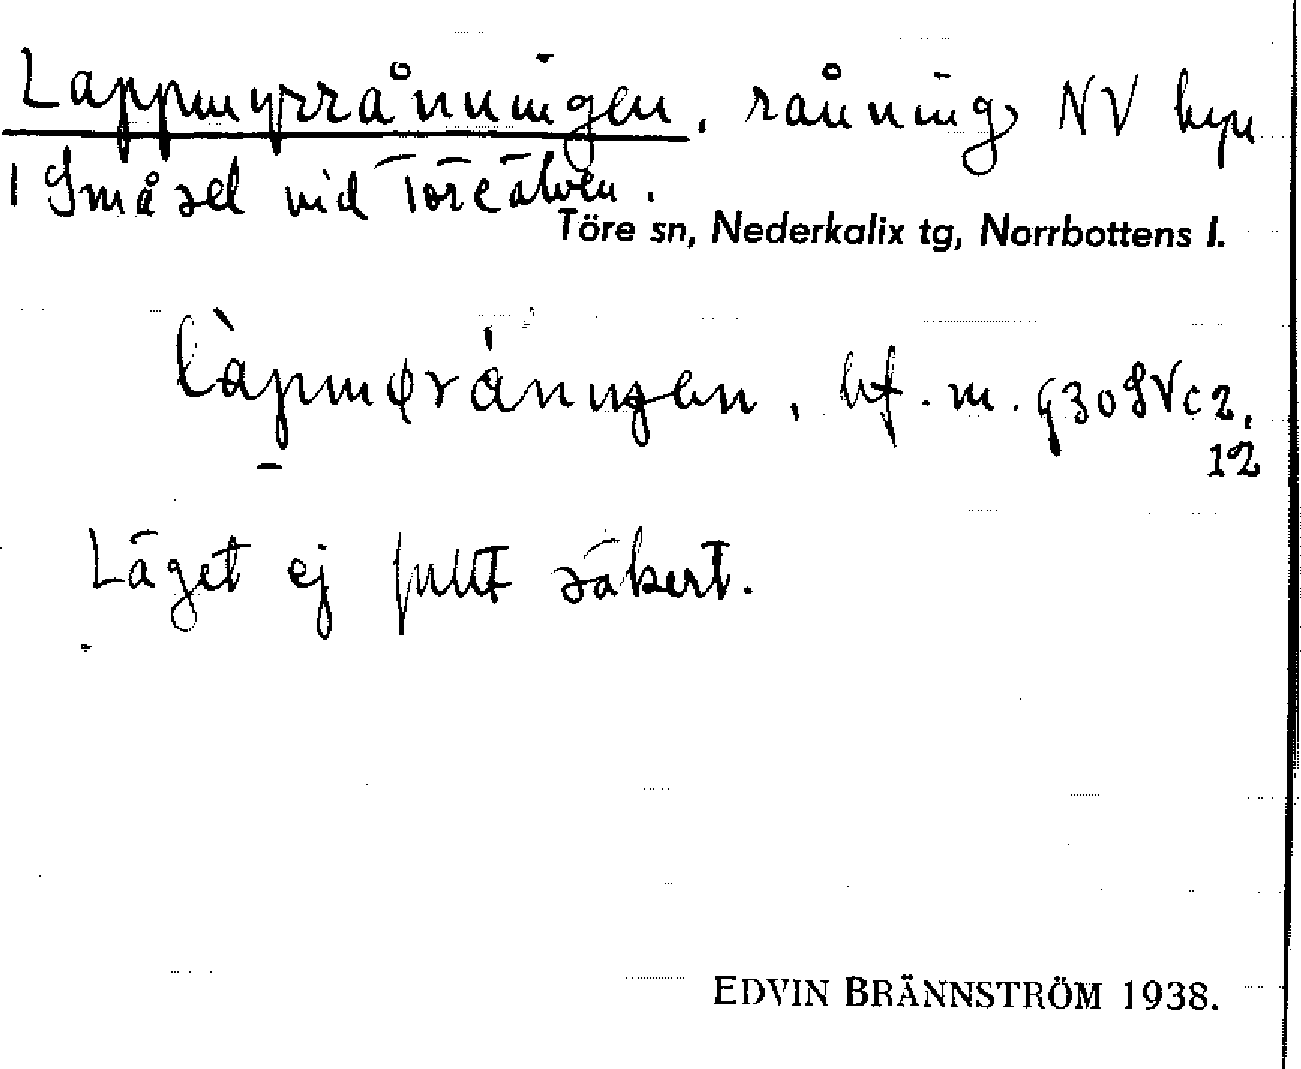 Lappmyrråningen, råning NV byn
Småsel vid Töreälven.
Töre sn, Nederkalix tg, Norrbottens l.
làpmøråningen, bf. m. 930SVc2,
12
Läget ej fullt säkert.
EDVIN BRÄNNSTRÖM 1938.